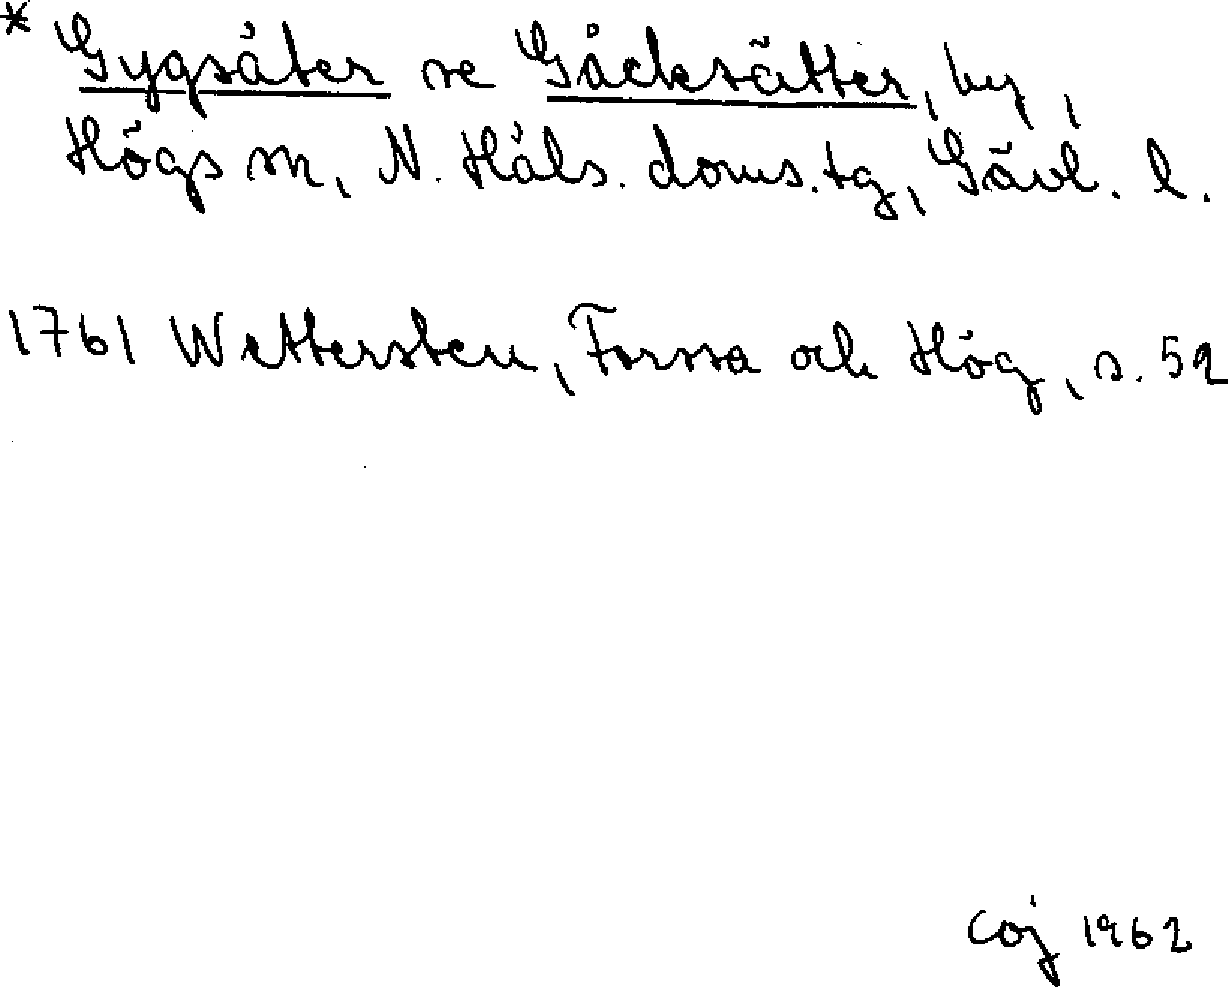 * Gygsäter se Gåcksätter, by,
Högs sn, N. Häls. doms.tg, Gävl. l.
1761 Wettersten, Forssa och Hög, s. 52
Coj 1962